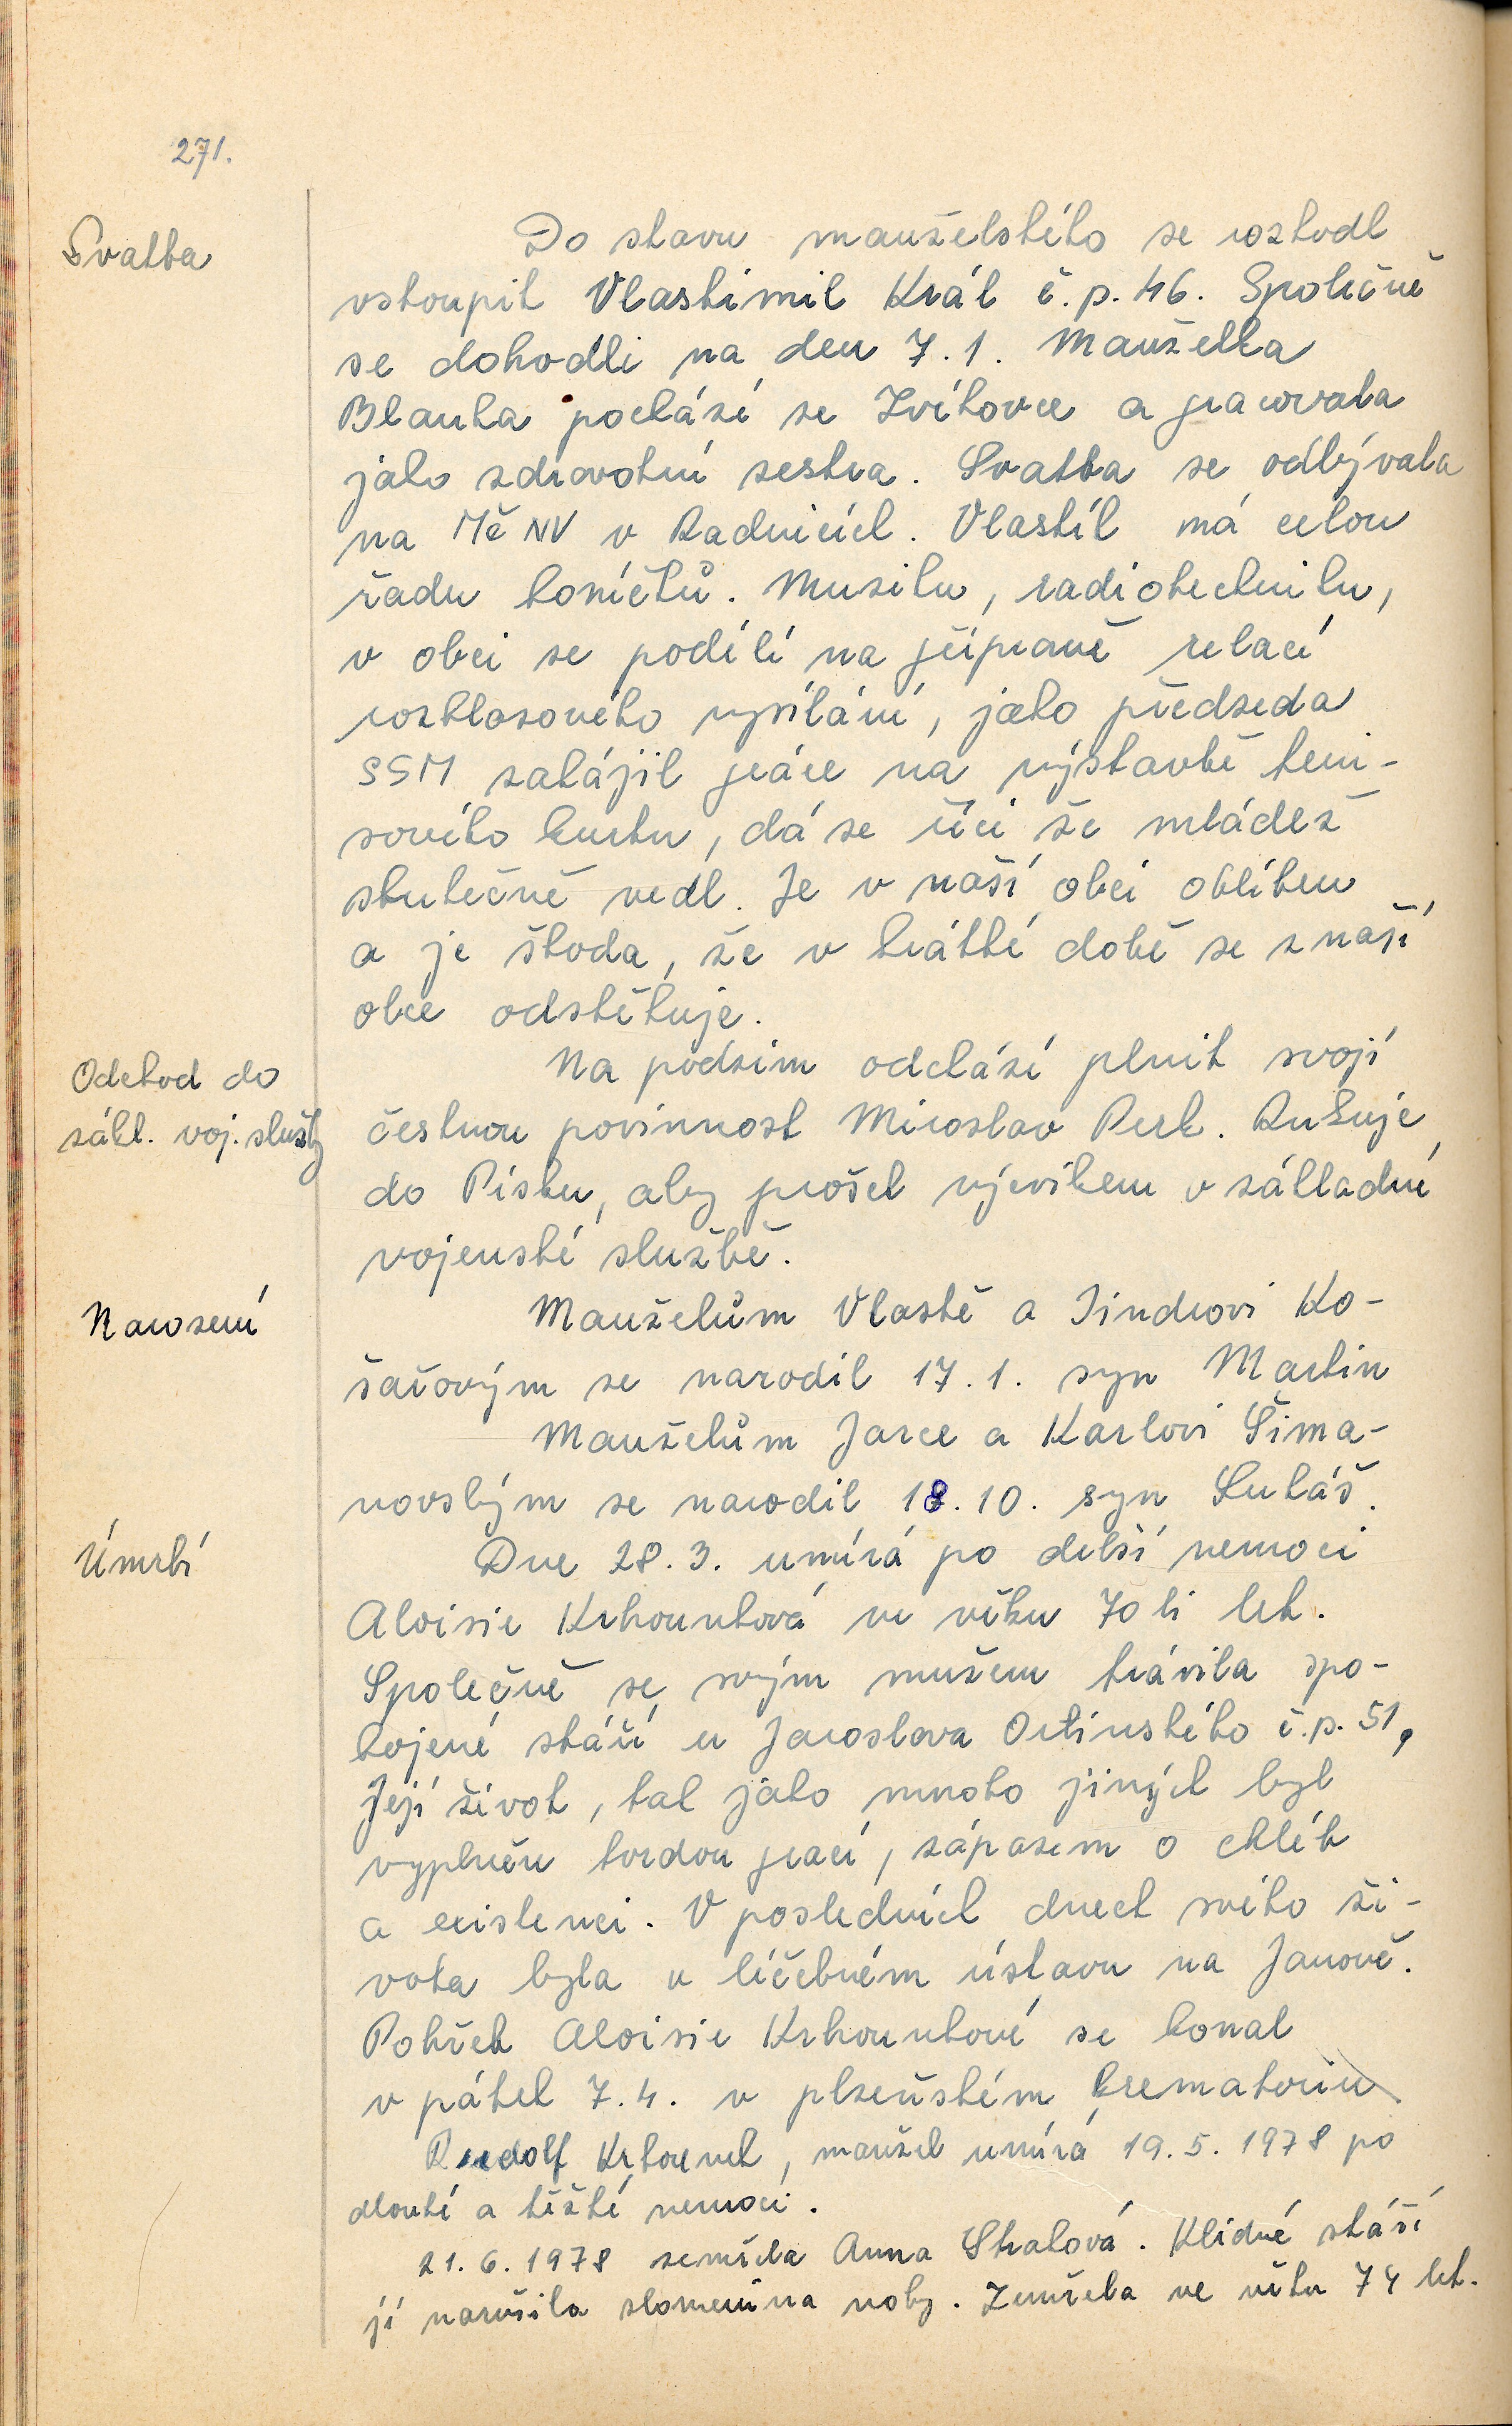 271.
Svatba
Do stavu manželského se rozhodl
vstoupit Vlastimil Král č.p. 46. Společně
se dohodli na den 7.1. Manželka
Blanka pochází ze Zvíkovce a pracovala
jako zdravotní sestra. Svatba se odbývala
na MěNV v Radnicích. Vlastíl má celou
řadu koníčků. Muziku, radiotechniku,
v obci se podílí na přípravě relací
rozhlasového vysílání, jako předseda
SSM zahájil práce na výstavbě teni-
sového kurtu, dá se říci že mládež
skutečně vedl. Je v naší obci oblíben
a je škoda, že v krátké době se z naší
obce odstěhuje.
Odchod do
zákl. voj. služby
Na podzim odchází plnit svojí
čestnou povinnost Miroslav Perk. Rukuje
do Písku, aby prošel výcvikem v základní
vojenské službě.
Narození
Manželům Vlastě a Jindrovi Ko-
šařovým se narodil 17.1. syn Martin
Manželům Jarce a Karlovi Šima-
novským se narodil 18.10. syn Lukáš.
Úmrtí
Dne 28.3. umírá po delší nemoci
Aloisie Krhounková ve věku 70ti let.
Společně se svým mužem trávila spo-
kojené stáří u Jaroslava Ortinského č.p. 51,
Její život, tak jako mnoho jiných byl
vyplněn tvrdou prací, zápasem o chléb
a existenci. V posledních dnech svého ži-
vota byla v léčebném ústavu na Janově.
Pohřeb Aloisie Krhounkové se konal
v pátek 7.4. v plzeňském krematoriu
Rudolf Krhounek, manžel umírá 19.5. 1978 po
dlouhé a těžké nemoci.
21.6. 1978 zemřela Anna Skalová. Klidné stáří
jí narušila zlomenina nohy. Zemřela ve věku 74 let.